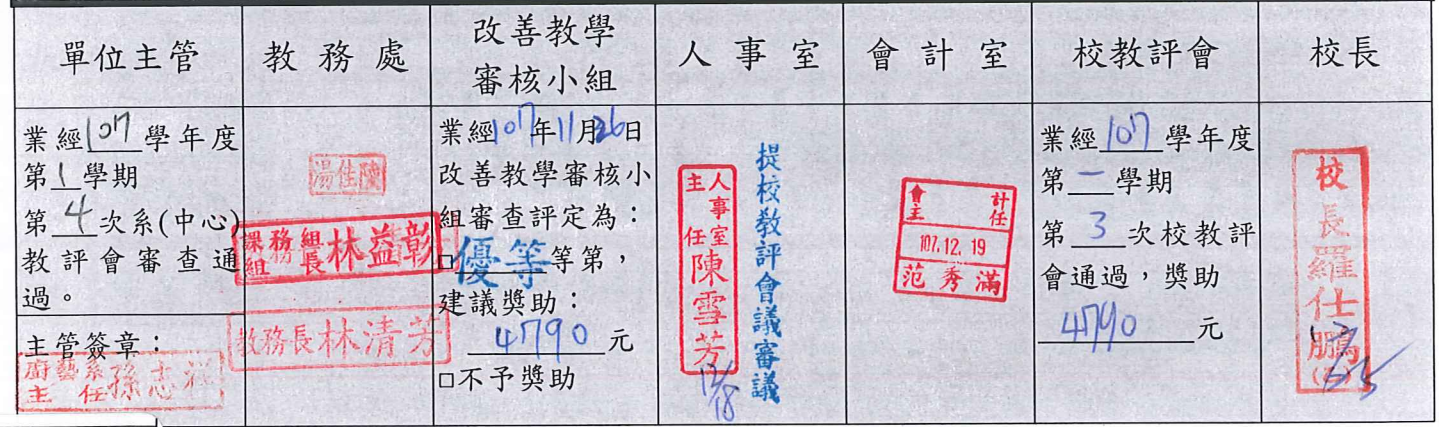 單位主管
教務處
改善教學
審核小組
人事室
會計室
校教評會
校長
業經107學年度
第1學期
第4次系(中心)
教評會審查通
過。
主管簽章：
廚藝系
主任孫志
湯佳陵
課務組
組長林益彰
教務長林清芳
業經107年11月26日
改善教學審核小
組審查評定為：
□優等等第，
建議獎助：
4790元
□不予獎助
人事室
主任陳雪芳
12/18
提校教評會議審議
會計
主任
107.12.19
范秀滿
業經107學年度
第一學期
第3次校教評
會通過，獎助
4790元
校長羅仕鵬